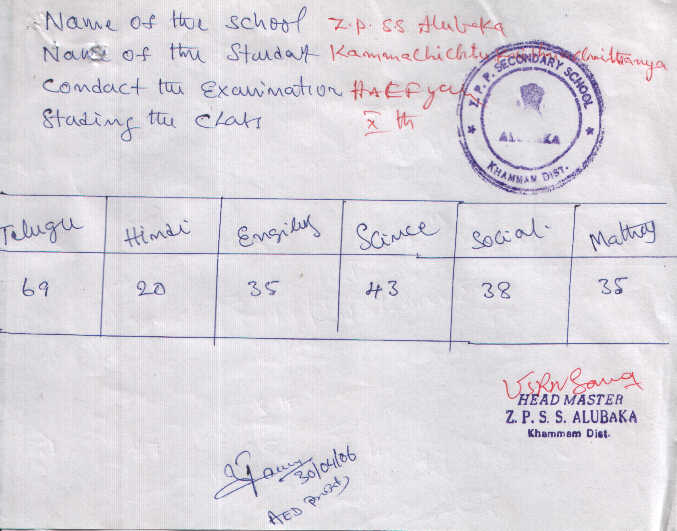 Name of the school Z.P. SS Alubaka
Name of the Studant Kammachichtu
Conduct the Examination HAEF year
Stading the Class X th
Z. P. P. SECONDARY SCHOOL
ALUBAKA
KHAMMAM DIST.
Telugu Hindi Engilsy Scince Social. Mathsy
69 20 35 43 38 35
HEAD MASTER
Z. P. S. S. ALUBAKA
Khammam Dist.
30/04/06
AED